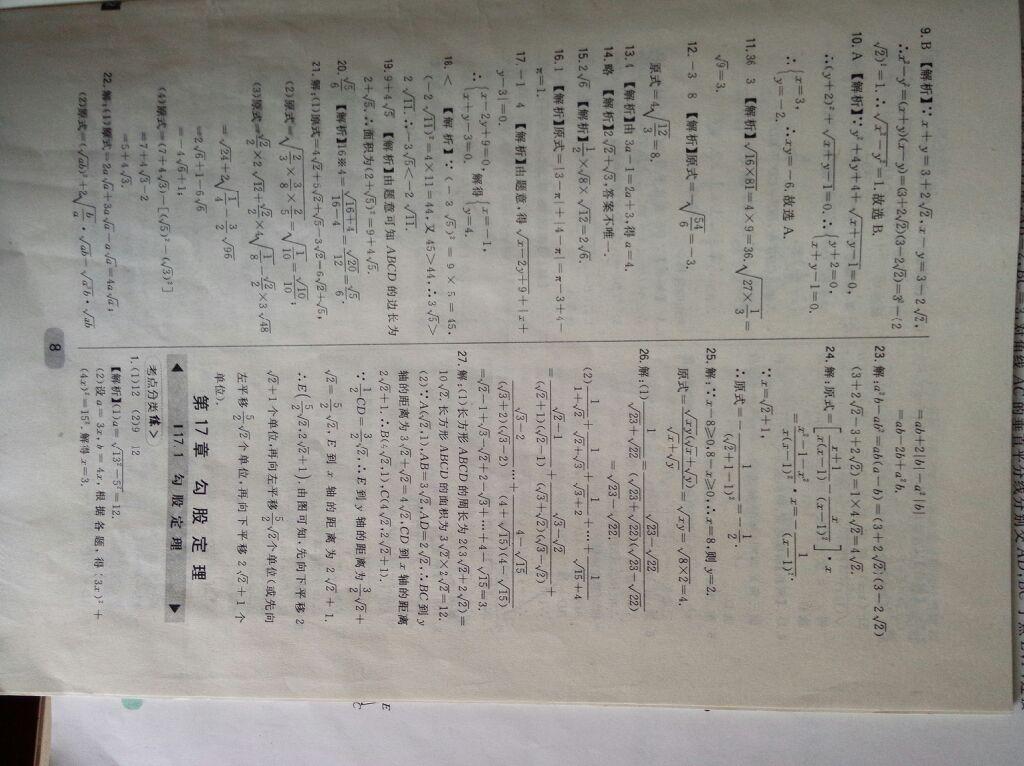 9. B 【解析】∵x+y=3+2√2,x-y=3-2√2,
∴x²-y²=(x+y)(x-y)=(3+2√2)(3-2√2)=3²-(2
√2)²=1,∴√(x²-y²)=1.故选 B.
10. A 【解析】∵y²+4y+4+√(x+y-1)=0,
∴(y+2)²+√(x+y-1)=0.∴{y+2=0, x+y-1=0.
∴{x=3, y=-2, ∴xy=-6.故选 A.
11. 36 3 【解析】√(16×81)=4×9=36.√(27×1/3)=
√9=3.
12. -3 8 【解析】原式=-√(54/6)=-3.
原式=4√(12/3)=8.
13. 4 【解析】由 3a-1=2a+3,得 a=4.
14. 略 【解析】2√2+√3,答案不唯一.
15. 2√6 【解析】1/2×√8×√12=2√6.
16. 1 【解析】原式=|3-π|+|4-π|=π-3+4-
π=1.
17. -1 4 【解析】由题意,得√(x-2y+9)+|x+
y-3|=0.
∴{x-2y+9=0, x+y-3=0, 解得{x=-1, y=4.
18. < 【解析】∵(-3√5)²=9×5=45,
(-2√11)²=4×11=44,又 45>44,∴3√5>
2√11,∴-3√5<-2√11.
19. 9+4√5 【解析】由题意可知 ABCD 的边长为
2+√5,∴面积为(2+√5)²=9+4√5.
20. √5/6 【解析】16※4=√(16+4)/(16-4)=√20/12=√5/6.
21. 解:(1)原式=4√2+5√2+√5-3√2=6√2+√5;
(2)原式=√(2/3×3/8×2/5)=√(1/10)=√10/10;
(3)原式=√2/2×2√12+√2/2×4√(1/8)-√2/2×3√48
=√24+2√(1/4)-3/2√96
=2√6+1-6√6
=-4√6+1;
(4)原式=(7+4√3)-[(√5)²-(√3)²]
=7+4√3-2
=5+4√3.
22. 解:(1)原式=2a√a+3a√a-a√a=4a√a;
(2)原式=(√ab)²+2√(b/a)·√ab-√(a³b)·√ab
=ab+2|b|-a²|b|
=ab-2b+a²b.
23. 解:a²b-ab²=ab(a-b)=(3+2√2)(3-2√2)
(3+2√2-3+2√2)=1×4√2=4√2.
24. 解:原式=[(x+1)/(x(x-1))-x/(x-1)²]·x
=(x²-1-x²)/(x(x-1)²)·x=-1/(x-1)².
∵x=√2+1,
∴原式=-1/(√2+1-1)²=-1/2.
25. 解:∵x-8≥0,8-x≥0,∴x=8,则 y=2.
原式=√xy(√x+√y)/(√x+√y)=√xy=√(8×2)=4.
26. 解:(1)1/(√23+√22)=(√23-√22)/((√23+√22)(√23-√22))
=√23-√22.
(2)1/(1+√2)+1/(√2+√3)+1/(√3+2)+…+1/(√15+4)
=(√2-1)/((√2+1)(√2-1))+(√3-√2)/((√3+√2)(√3-√2))+
(√3-2)/((√3+2)(√3-2))+…+(4-√15)/((4+√15)(4-√15))
=√2-1+√3-√2+2-√3+…+4-√15=3.
27. 解:(1)长方形 ABCD 的周长为 2(3√2+2√2)=
10√2,长方形 ABCD 的面积为 3√2×2√2=12.
(2)∵A(√2,1),AB=3√2,AD=2√2,∴BC 到 y
轴的距离为 3√2+√2=4√2,CD 到 x 轴的距离
2√2+1.∴B(4√2,1),C(4√2,2√2+1).
∵1/2CD=3/2√2,∴E 到 y 轴的距离为3/2√2+
√2=5/2√2,E 到 x 轴的距离为 2√2+1.
∴E(5/2√2,2√2+1),由图可知,先向下平移 2
√2+1 个单位,再向左平移5/2√2个单位(或先向
左平移5/2√2个单位,再向下平移 2√2+1 个
单位).
第 17 章 勾股定理
17.1 勾股定理
考点分类练 >
1. (1)12 (2)9 12
【解析】(1)a=√(13²-5²)=12.
(2)设 a=3x,b=4x,根据各题,得(3x)²+
(4x)²=15²,解得 x=3.
8
E
C